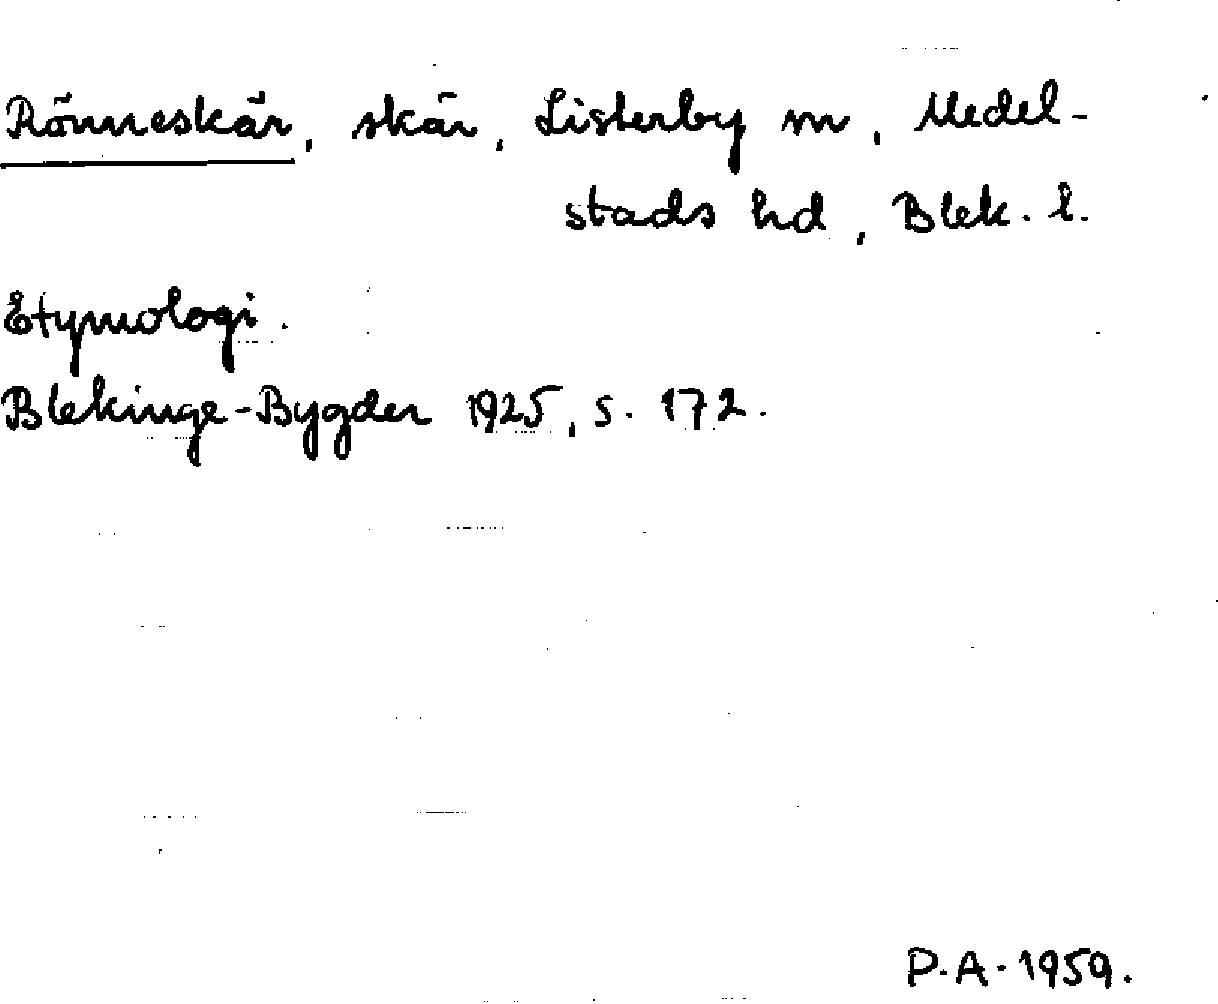 Rönneskär, skär, Listerby sn, Medel-
stads hd, Blek. l.
Etymologi.
Blekinge-Bygder 1925, s. 172.
P.A. 1959.